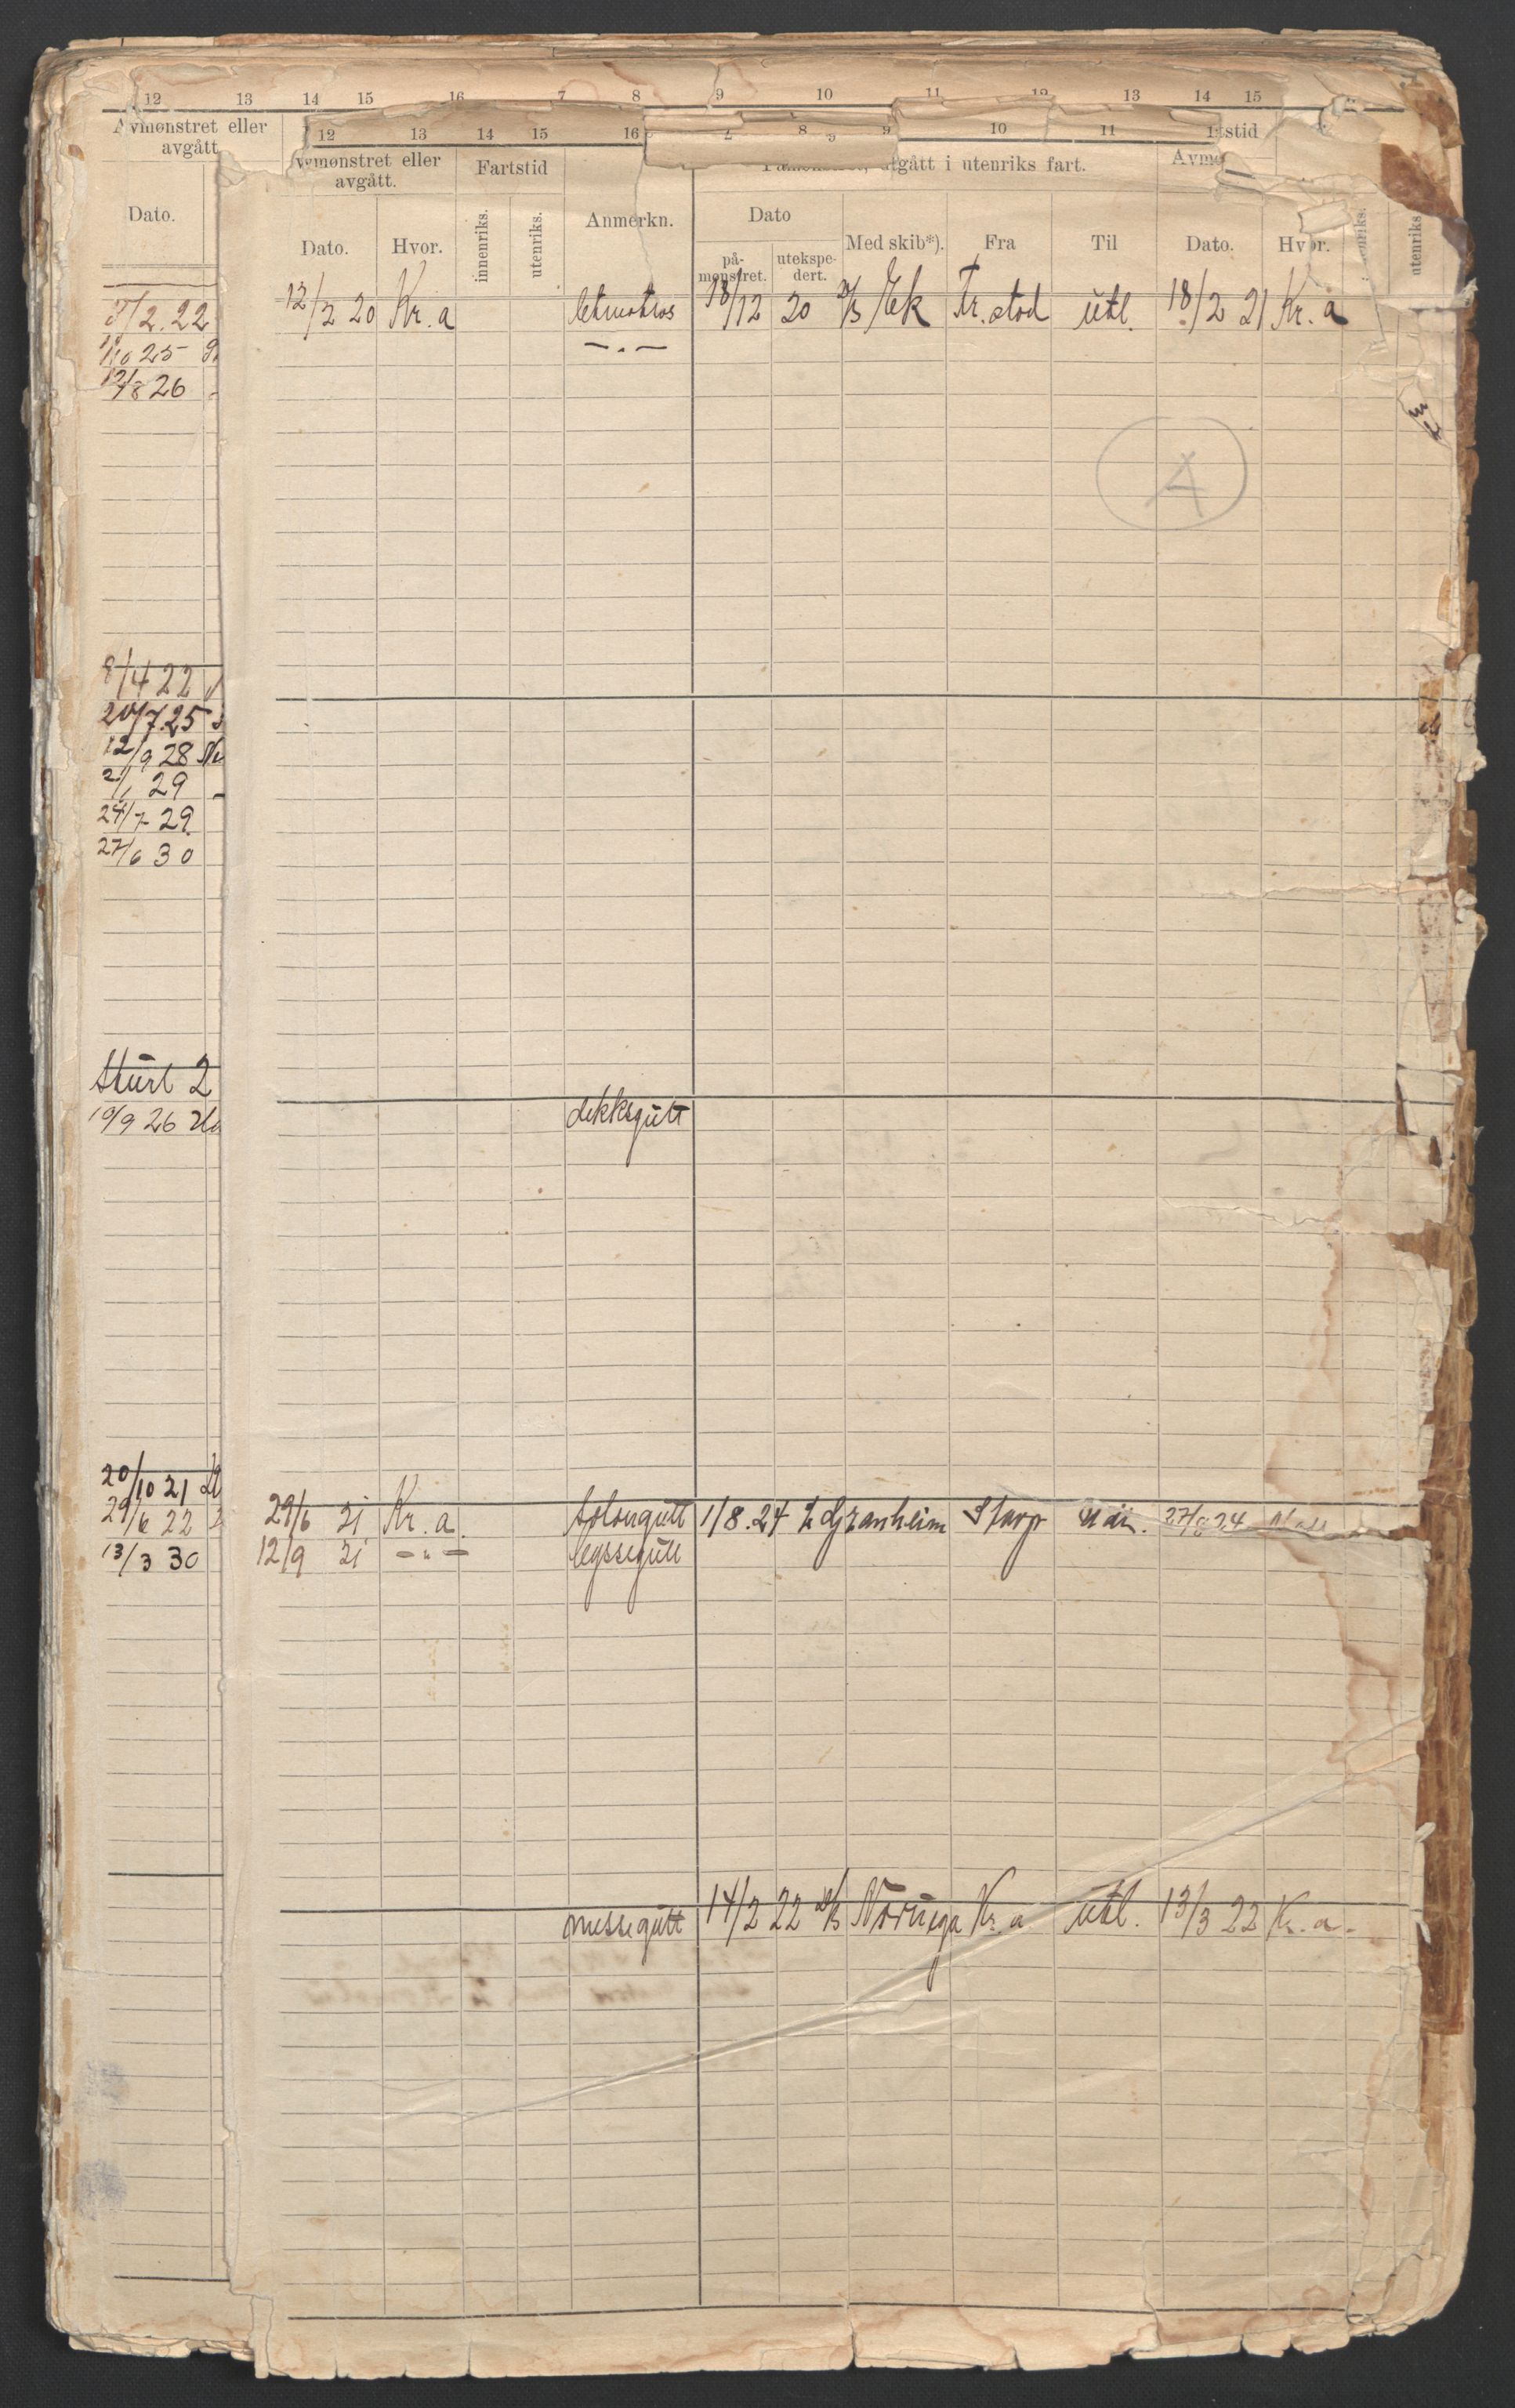 12 13 14 15 16 7 8 9 10 11 12 13 14 15
Avmønstret eller avgått
Dato.
12 13 14 15 16 8 9 10 11
Avmønstret eller avgått.
Fartstid
utgått i utenriks fart.
tstid
Dato.
Hvor.
innenriks.
utenriks.
Anmerkn.
Dato
på-mønstret.
utekspe-dert.
Med skib*).
Fra
Til
Dato.
Hvor.
utenriks
/2.22
12/2 20 Kr. a letmatros 18/12 20 D/S Ek Fr.stad utl. 18/2 21 Kr. a
25
— . —
12/8 26
A
8/4 22
20/7.25
12/9 28
2/1 29
24/7 29
27/6 30
2
dekksgutt
10/9 26
20/10 21
29/6 22
29/6 21 Kr. a. salongutt 1/8.24 Granheim 24
13/3 30
12/9 21 — " — byssegutt
messegutt 14/2 22 D/S Noruega Kr. a utl. 13/3 22 Kr. a.